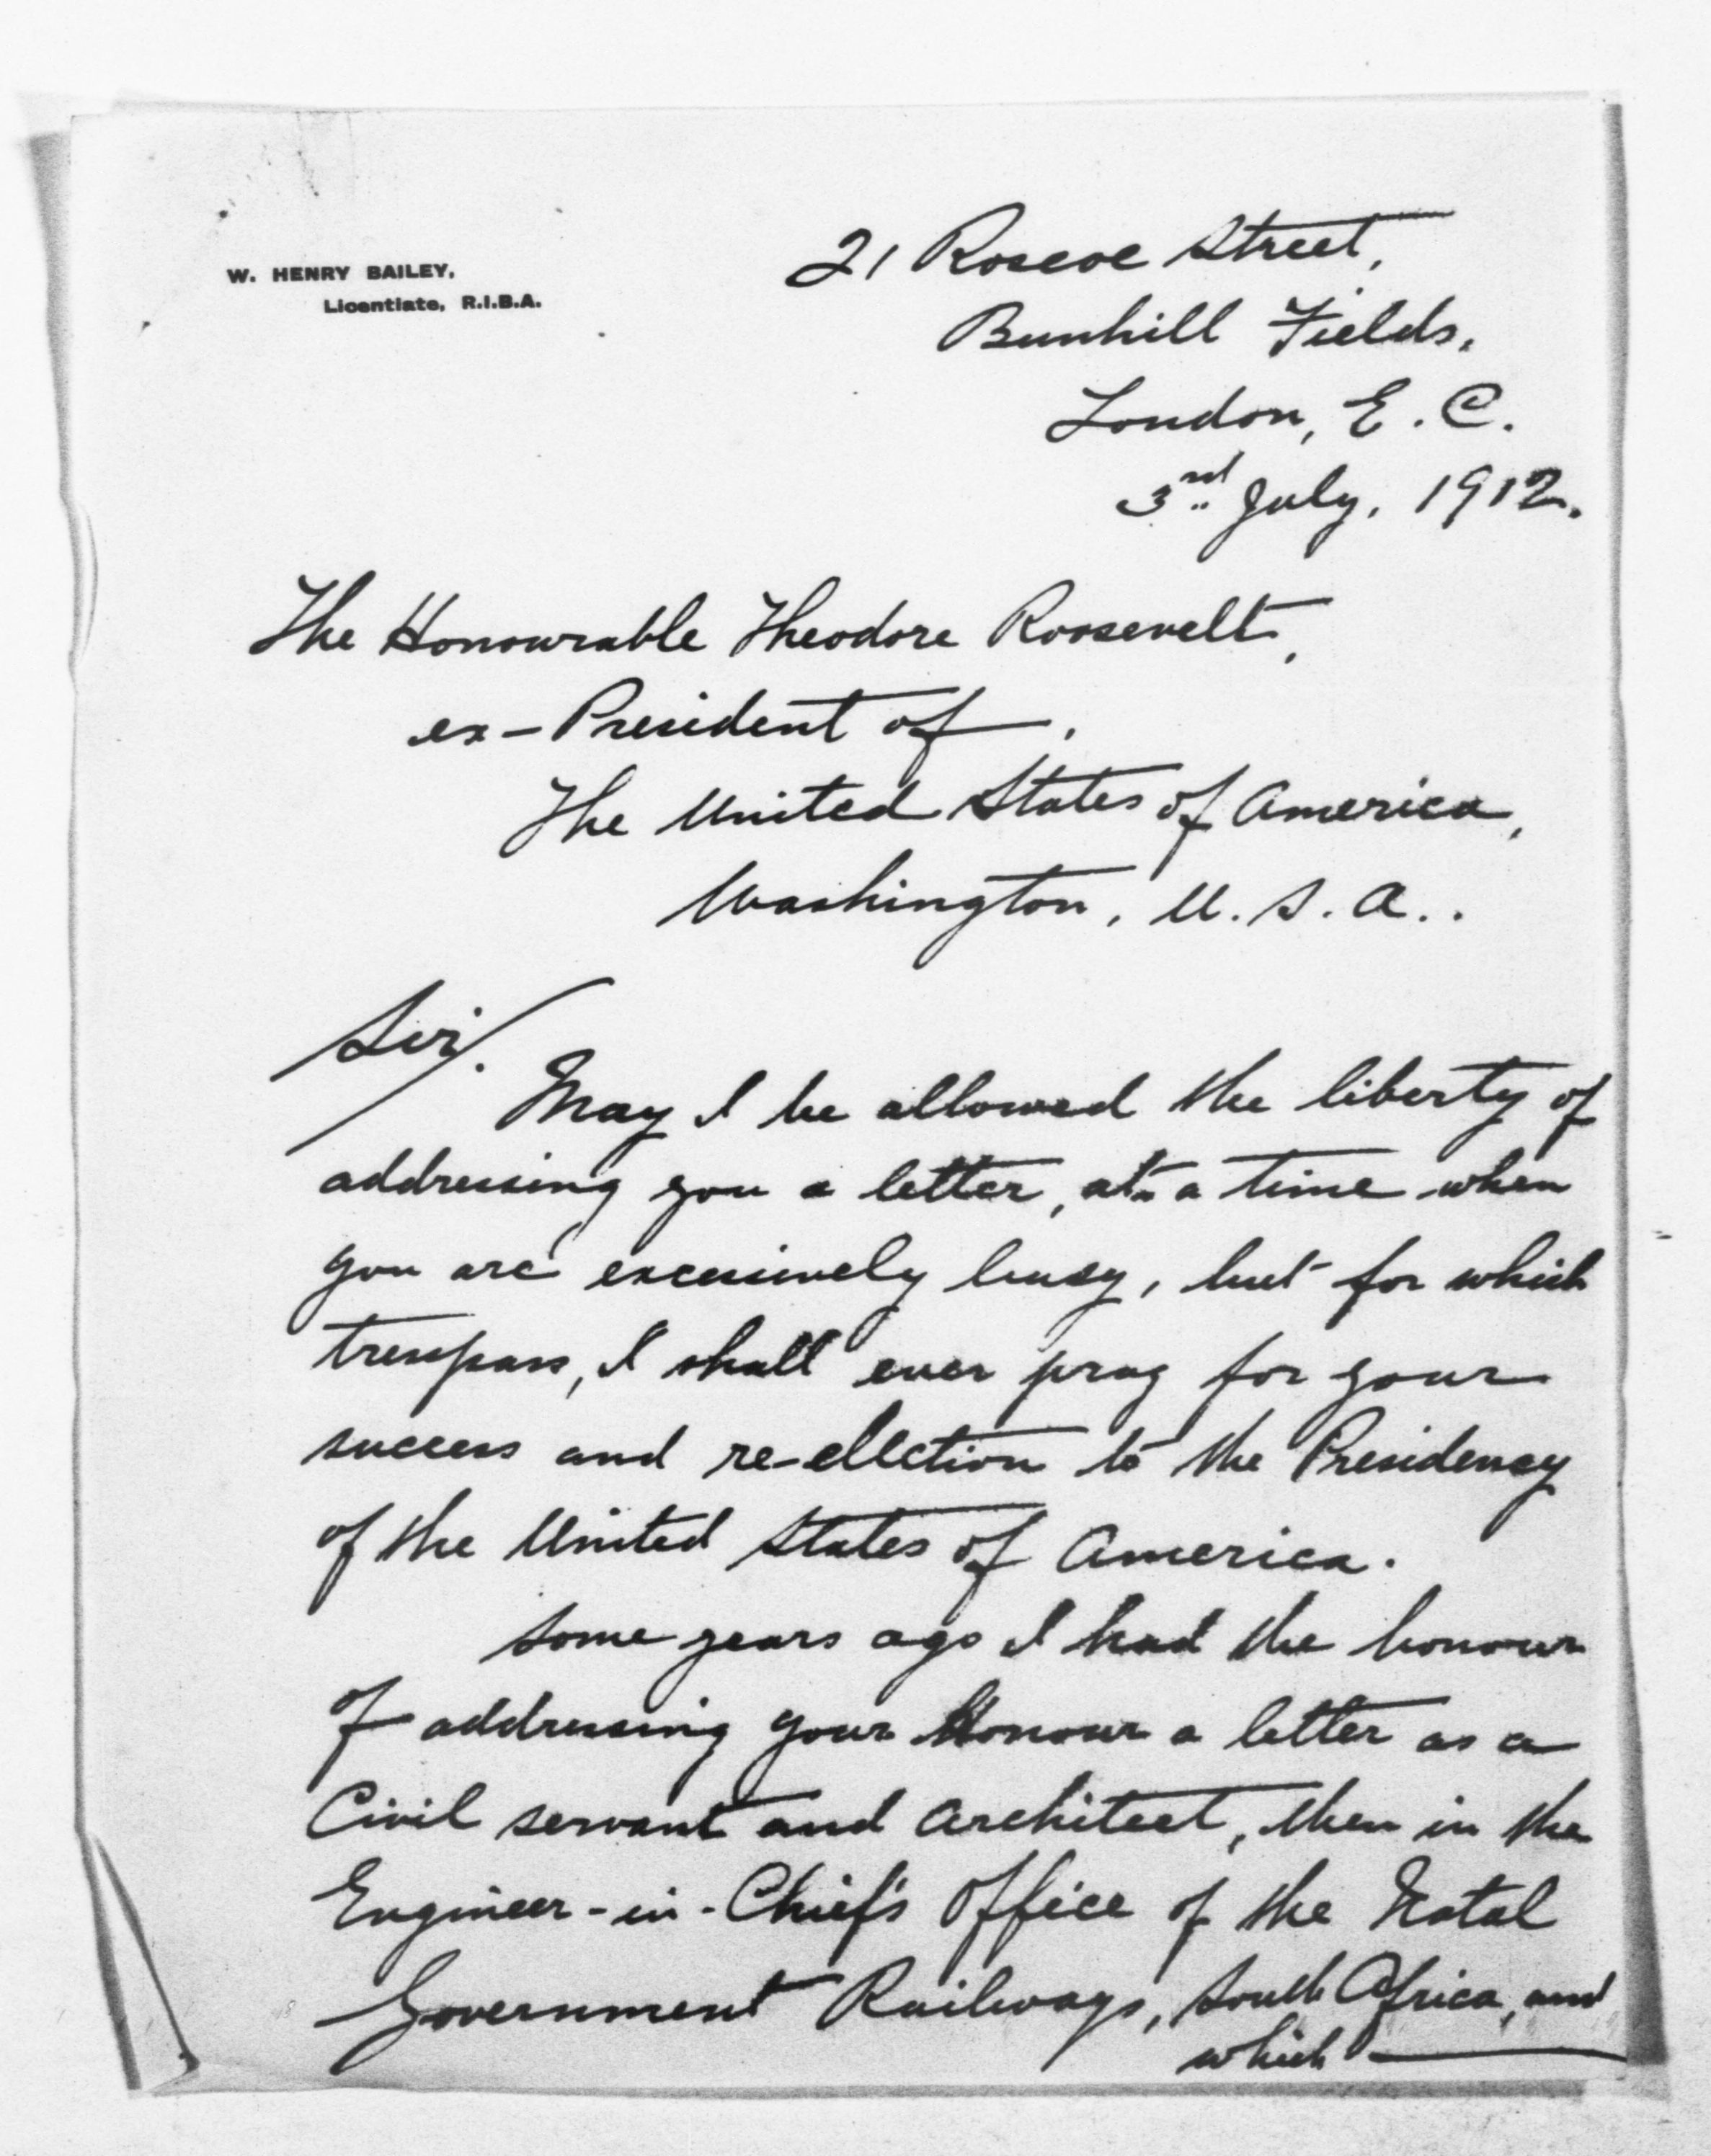 W. HENRY BAILEY,
Licentiate, R.I.B.A.
21 Roscoe Street,
Bunhill Fields,
London, E. C.
3rd July, 1912.
The Honourable Theodore Roosevelt,
ex-President of,
The United States of America,
Washington, U. S. A..
Sir/.
May I be allowed the liberty of
addressing you a letter, at a time when
you are excessively busy, but for which
trespass, I shall ever pray for your
success and re-election to the Presidency
of the United States of America.
Some years ago I had the honour
of addressing your Honour a letter as a
Civil servant and Architect, then in the
Engineer-in-Chief's Office of the Natal
Government Railways, South Africa, and
which